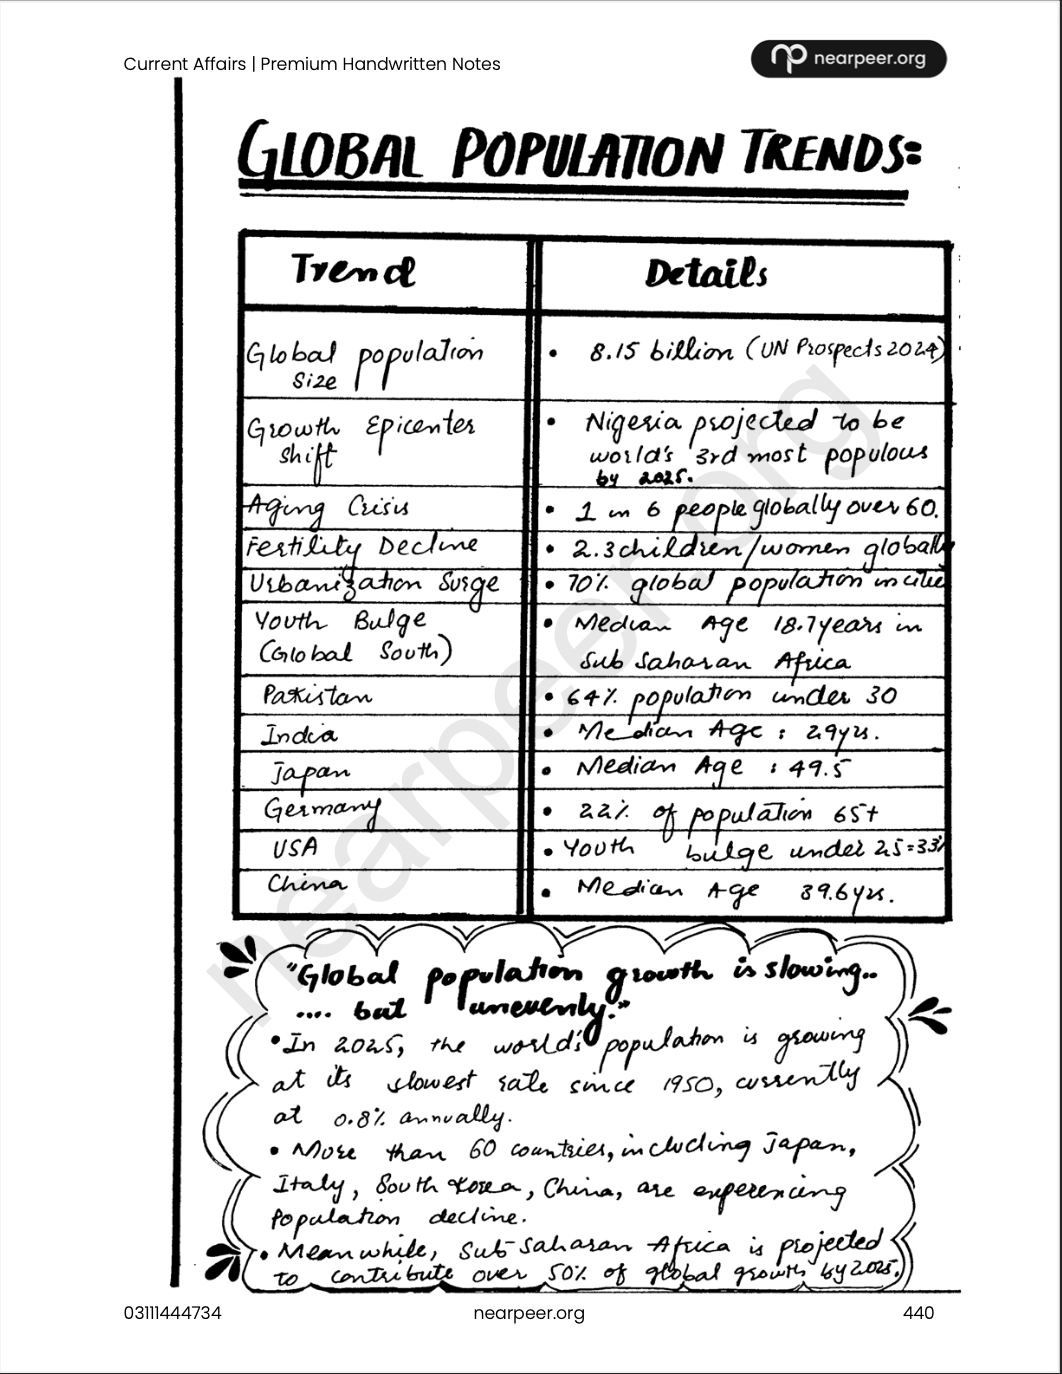 Current Affairs | Premium Handwritten Notes
nearpeer.org
GLOBAL POPULATION TRENDS:
Trend Details
Global population size • 8.15 billion (UN Prospects 2024)
Growth Epicenter shift • Nigeria projected to be
world's 3rd most populous
by 2025.
Aging Crisis • 1 in 6 people globally over 60.
Fertility Decline • 2.3 children/women globally
Urbanization Surge • 70% global population in citie
Youth Bulge (Global South) • Median Age 18.7 years in
Sub Saharan Africa
Pakistan • 64% population under 30
India • Median Age : 29 yrs.
Japan • Median Age : 49.5
Germany • 22% of population 65+
USA • Youth bulge under 25=33%
China • Median Age 39.6 yrs.
"Global population growth is slowing..
.... but unevenly."
• In 2025, the world's population is growing
at its slowest rate since 1950, currently
at 0.8% annually.
• More than 60 countries, including Japan,
Italy, South Korea, China, are experencing
Population decline.
• Meanwhile, Sub-Saharan Africa is projected
to contribute over 50% of global growth by 2025.
03111444734 nearpeer.org 440
nearpeer.org